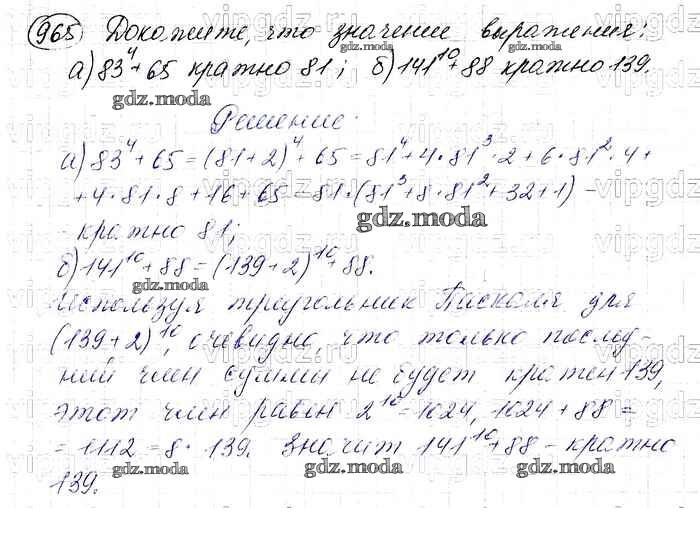 965 Докажите, что значение выражения:
а) 83⁴+65 кратно 81; б) 141¹⁰+88 кратно 139.
Решение.
а) 83⁴+65 = (81+2)⁴+65 = 81⁴+4·81³·2+6·81²·4+
+4·81·8+16+65 = 81·(81³+8·81²+32+1) -
- кратно 81;
б) 141¹⁰+88 = (139+2)¹⁰+88.
Используя треугольник Паскаля для
(139+2)¹⁰, очевидно, что только послед-
ний член суммы не будет кратен 139,
этот член равен 2¹⁰=1024, 1024+88=
=1112=8·139. Значит 141¹⁰+88 - кратно
139.
gdz.moda
gdz.moda
gdz.moda
gdz.moda
gdz.moda
gdz.moda